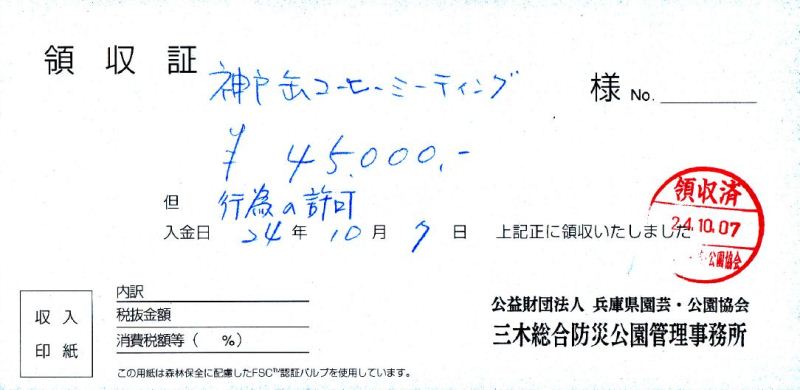 領収証 神戸缶コーヒーミーティング 様 No.
¥ 45.000.-
但 行為の許可
入金日 24年 10月 7日 上記正に領収いたしました
領収済
24.10.07
公園協会
収入
印紙
内訳
税抜金額
消費税額等( %)
公益財団法人 兵庫県園芸・公園協会
三木総合防災公園管理事務所
この用紙は森林保全に配慮したFSC™認証パルプを使用しています。